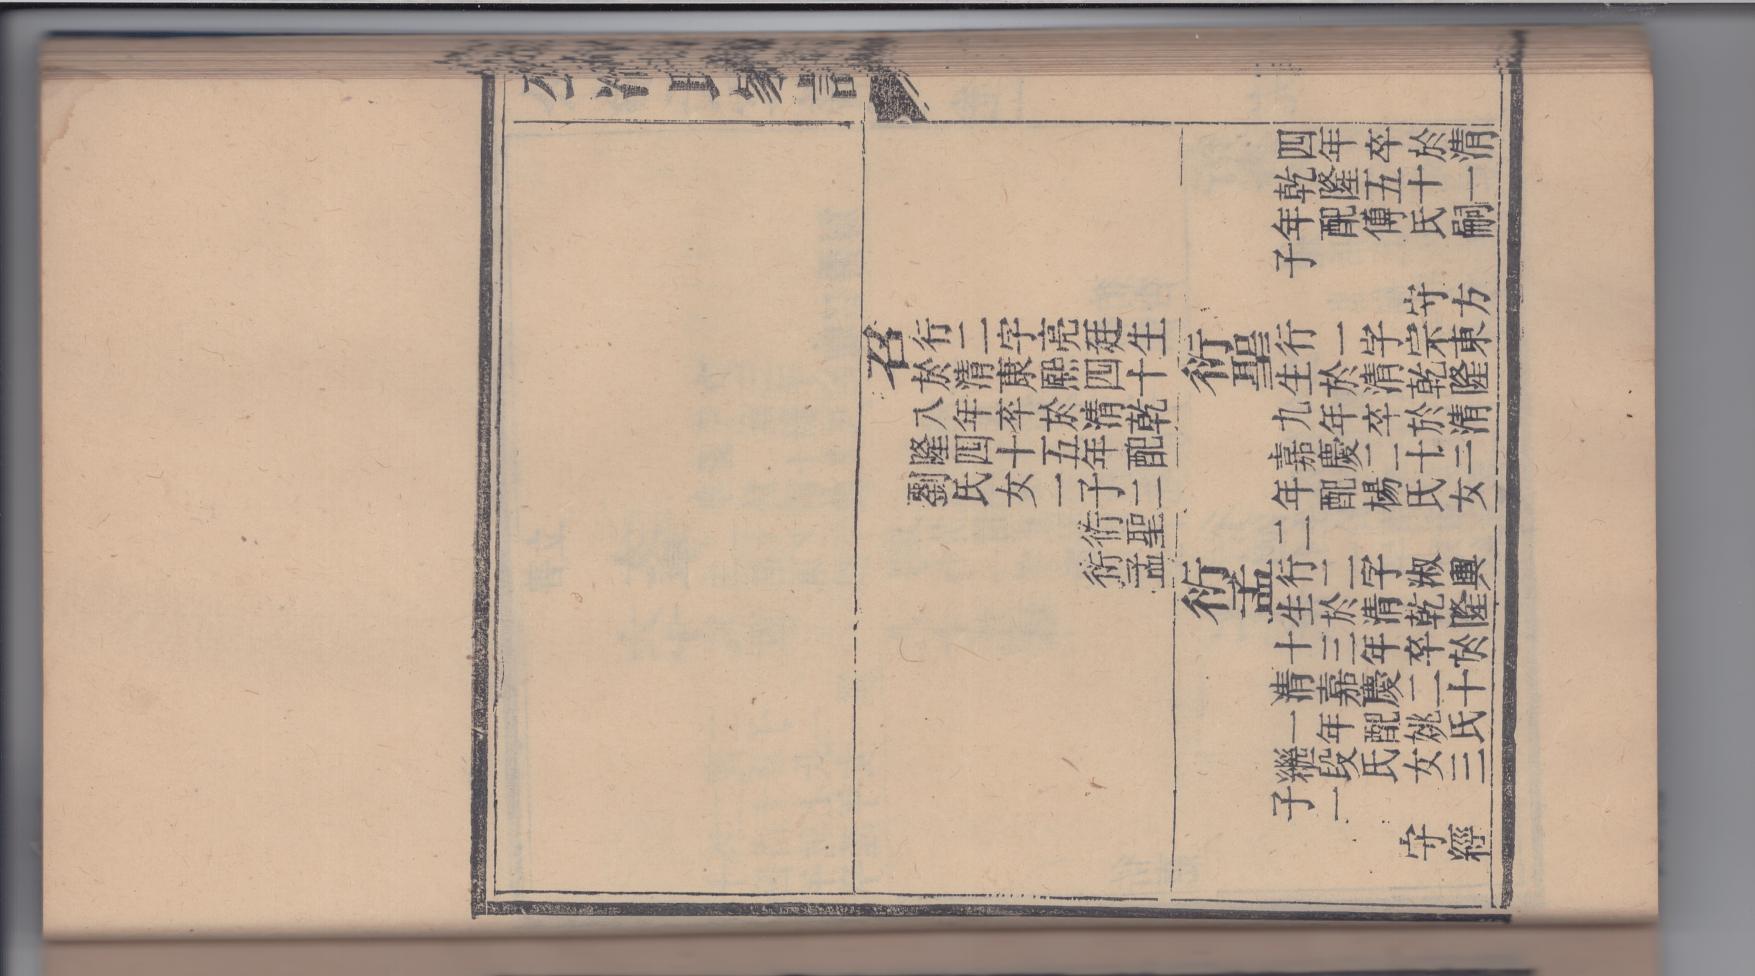 四年卒於清
乾隆五十一
年配傅氏嗣
子
守方
召
行二字亮廷生
於清康熙四十
八年卒於清乾
隆四十五年配
劉氏女一子二
衍聖
衍孟
衍聖
行一字宗東
生於清乾隆
九年卒於清
嘉慶二十三
年配楊氏女
二
衍孟
行二字淑興
生於清乾隆
十三年卒於
清嘉慶二十
一年配姚氏
繼段氏女三
子一
守經